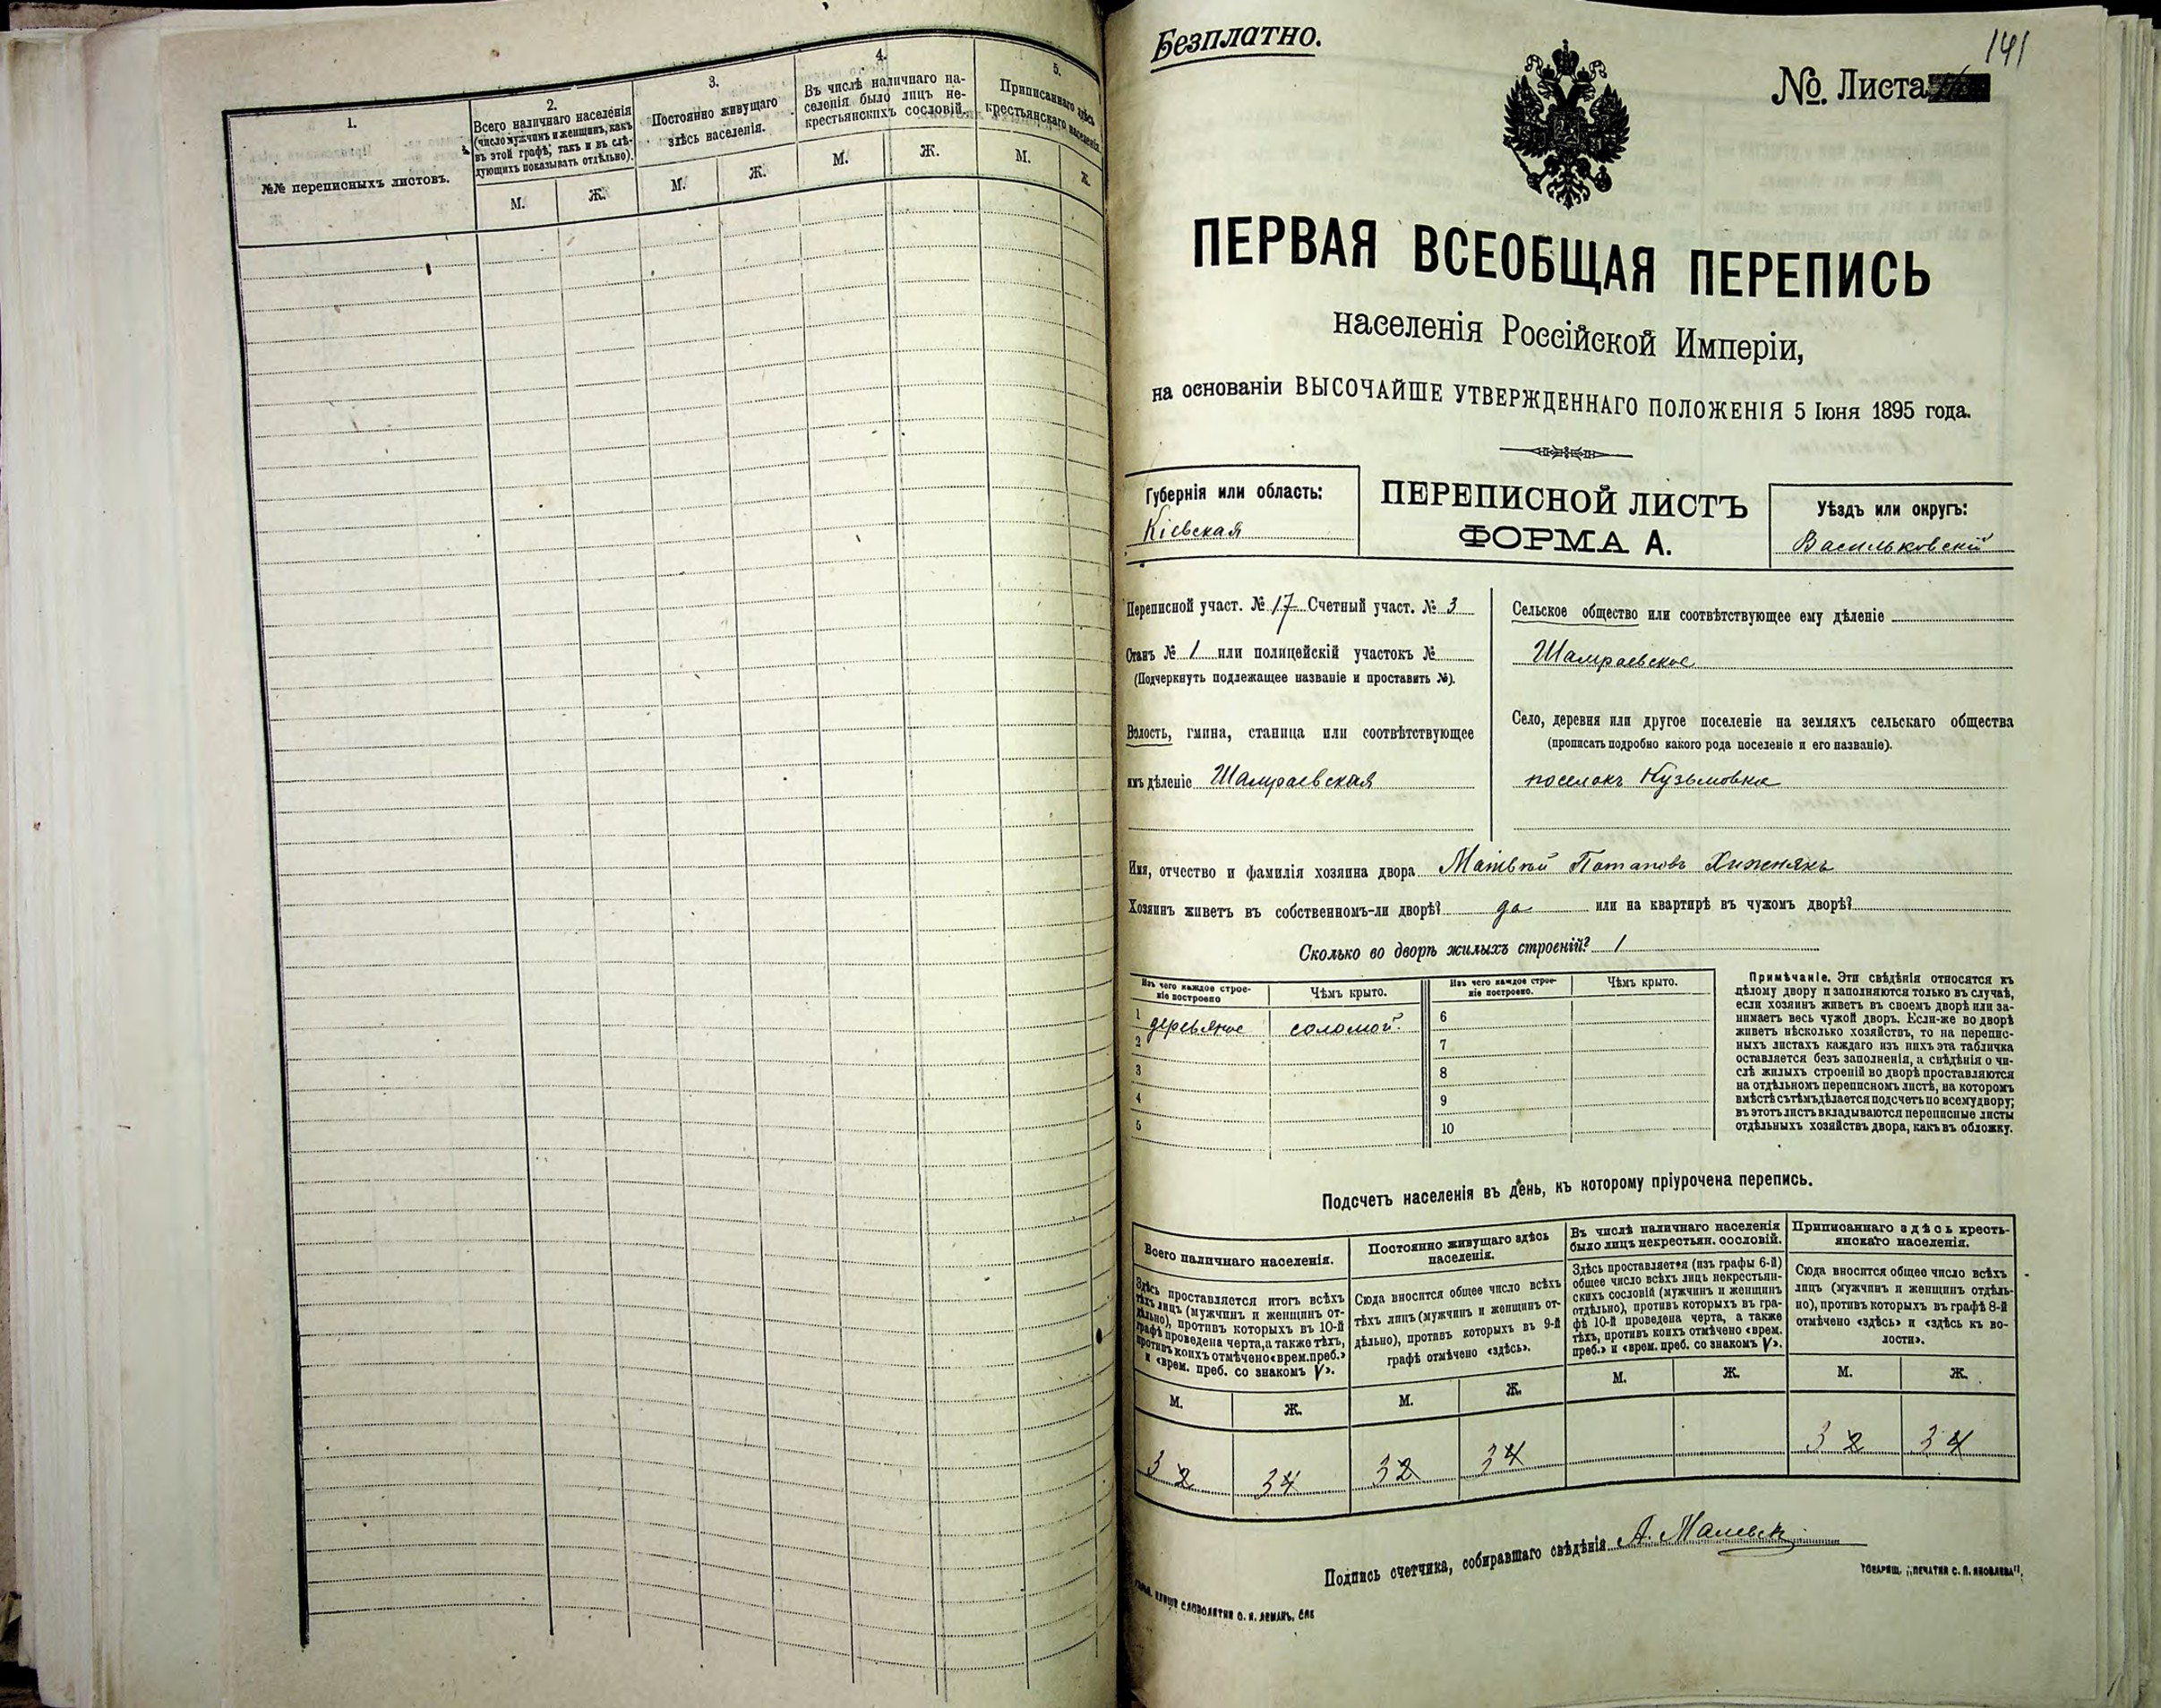 1.
№№ переписныхъ листовъ.
2.
Всего наличнаго населенія
(число мужчинъ и женщинъ, какъ
въ этой графѣ, такъ и въ слѣ-
дующихъ показывать отдѣльно).
М. Ж.
3.
Постоянно живущаго
здѣсь населенія.
М. Ж.
4.
Въ числѣ наличнаго на-
селенія было лицъ не-
крестьянскихъ сословій.
М. Ж.
5.
Приписаннаго здѣсь
крестьянскаго населенія.
М. Ж.
Безплатно.
141
№. Листа
ПЕРВАЯ ВСЕОБЩАЯ ПЕРЕПИСЬ
населенія Россійской Имперіи,
на основаніи ВЫСОЧАЙШЕ УТВЕРЖДЕННАГО ПОЛОЖЕНІЯ 5 Іюня 1895 года.
Губернія или область:
Кіевская
ПЕРЕПИСНОЙ ЛИСТЪ
ФОРМА А.
Уѣздъ или округъ:
Васильковскій
Переписной участ. № 17 Счетный участ. № 3
Станъ № 1 или полицейскій участокъ №
(Подчеркнуть подлежащее названіе и проставить №).
Волость, гмина, станица или соотвѣтствующее
имъ дѣленіе Шамраевская
Сельское общество или соотвѣтствующее ему дѣленіе
Шамраевское
Село, деревня или другое поселеніе на земляхъ сельскаго общества
(прописать подробно какого рода поселеніе и его названіе).
поселокъ Кузьмовка
Имя, отчество и фамилія хозяина двора Матвѣй Потаповъ Хижнякъ
Хозяинъ живетъ въ собственномъ-ли дворѣ? да или на квартирѣ въ чужомъ дворѣ?
Сколько во дворѣ жилыхъ строеній? 1
Изъ чего каждое строе-
ніе построено
Чѣмъ крыто.
Изъ чего каждое строе-
ніе построено.
Чѣмъ крыто.
1 деревяное соломой. 6
2 7
3 8
4 9
5 10
Примѣчаніе. Эти свѣдѣнія относятся къ
цѣлому двору и заполняются только въ случаѣ,
если хозяинъ живетъ въ своемъ дворѣ или за-
нимаетъ весь чужой дворъ. Если-же во дворѣ
живетъ нѣсколько хозяйствъ, то на перепис-
ныхъ листахъ каждаго изъ нихъ эта табличка
оставляется безъ заполненія, а свѣдѣнія о чи-
слѣ жилыхъ строеній во дворѣ проставляются
на отдѣльномъ переписномъ листѣ, на которомъ
вмѣстѣ съ тѣмъ дѣлается подсчетъ по всему двору;
въ этотъ листъ вкладываются переписные листы
отдѣльныхъ хозяйствъ двора, какъ въ обложку.
Подсчетъ населенія въ день, къ которому пріурочена перепись.
Всего наличнаго населенія.
Здѣсь проставляется итогъ всѣхъ
тѣхъ лицъ (мужчинъ и женщинъ от-
дѣльно), противъ которыхъ въ 10-й
графѣ проведена черта, а также тѣхъ,
противъ коихъ отмѣчено «врем. преб.»
и «врем. преб. со знакомъ V».
М. Ж.
Постоянно живущаго здѣсь
населенія.
Сюда вносится общее число всѣхъ
тѣхъ лицъ (мужчинъ и женщинъ от-
дѣльно), противъ которыхъ въ 9-й
графѣ отмѣчено «здѣсь».
М. Ж.
Въ числѣ наличнаго населенія
было лицъ некрестьян. сословій.
Здѣсь проставляется (изъ графы 6-й)
общее число всѣхъ лицъ некрестьян-
скихъ сословій (мужчинъ и женщинъ
отдѣльно), противъ которыхъ въ гра-
фѣ 10-й проведена черта, а также
тѣхъ, противъ коихъ отмѣчено «врем.
преб.» и «врем. преб. со знакомъ V».
М. Ж.
Приписаннаго здѣсь кресть-
янскаго населенія.
Сюда вносится общее число всѣхъ
лицъ (мужчинъ и женщинъ отдѣль-
но), противъ которыхъ въ графѣ 8-й
отмѣчено «здѣсь» и «здѣсь къ во-
лости».
М. Ж.
3 2 3 4 3 2 3 4 3 2 3 4
Подпись счетчика, собиравшаго свѣдѣнія А.
СЛОВОЛИТНИ О. И. ЛЕМАНЪ, СПБ
ТОВАРИЩ. „ПЕЧАТНЯ С. П. ЯКОВЛЕВА“.